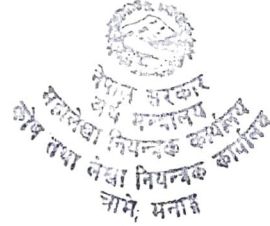 नेपाल सरकार
अर्थ मन्त्रालय
महालेखा नियन्त्रक कार्यालय
कोष तथा लेखा नियन्त्रक कार्यालय
चामे, मनाङ